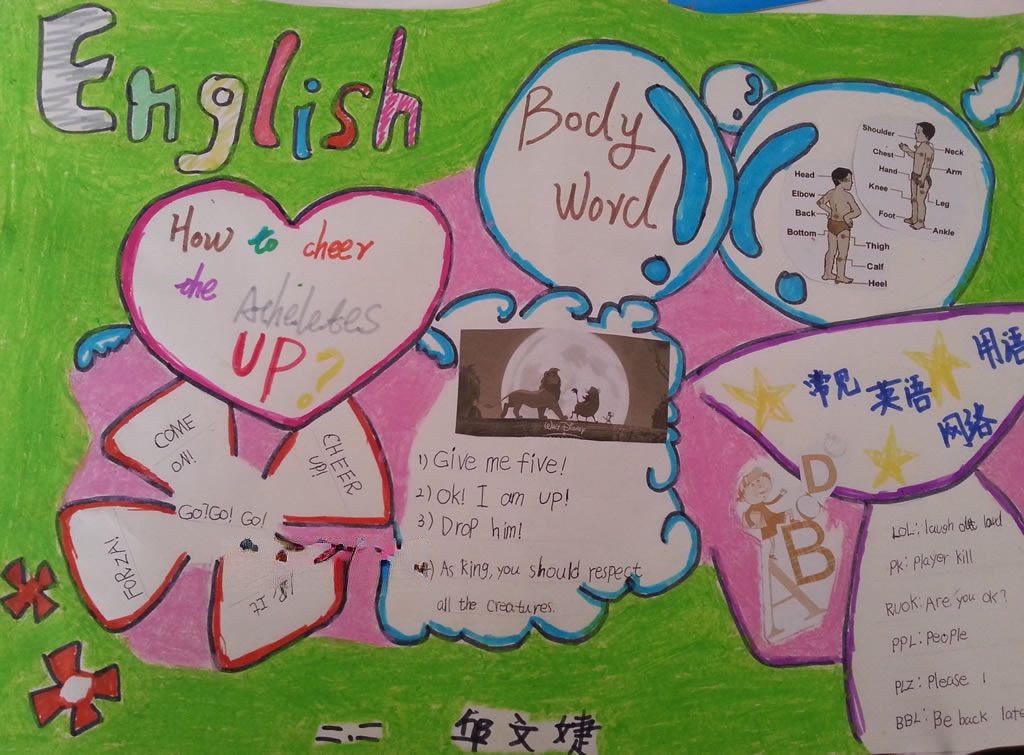 English
How to cheer
the Atheletes
UP?
COME
ON!
CHEER
UP!
GO! GO! GO!
FORZA!
IT
Body
Word
Shoulder
Neck
Chest
Arm
Hand
Knee
Leg
Foot
Ankle
Head
Elbow
Back
Bottom
Thigh
Calf
Heel
WALT DISNEY
1) Give me five!
2) Ok! I am up!
3) Drop him!
4) As King, you should respect
all the creatures.
常见 英语 网络 用语
A B C D
LOL: laugh out loud
PK: player kill
RUOK: Are you ok?
PPL: People
PLZ: Please
BBL: Be back late
二.二 邱文婕